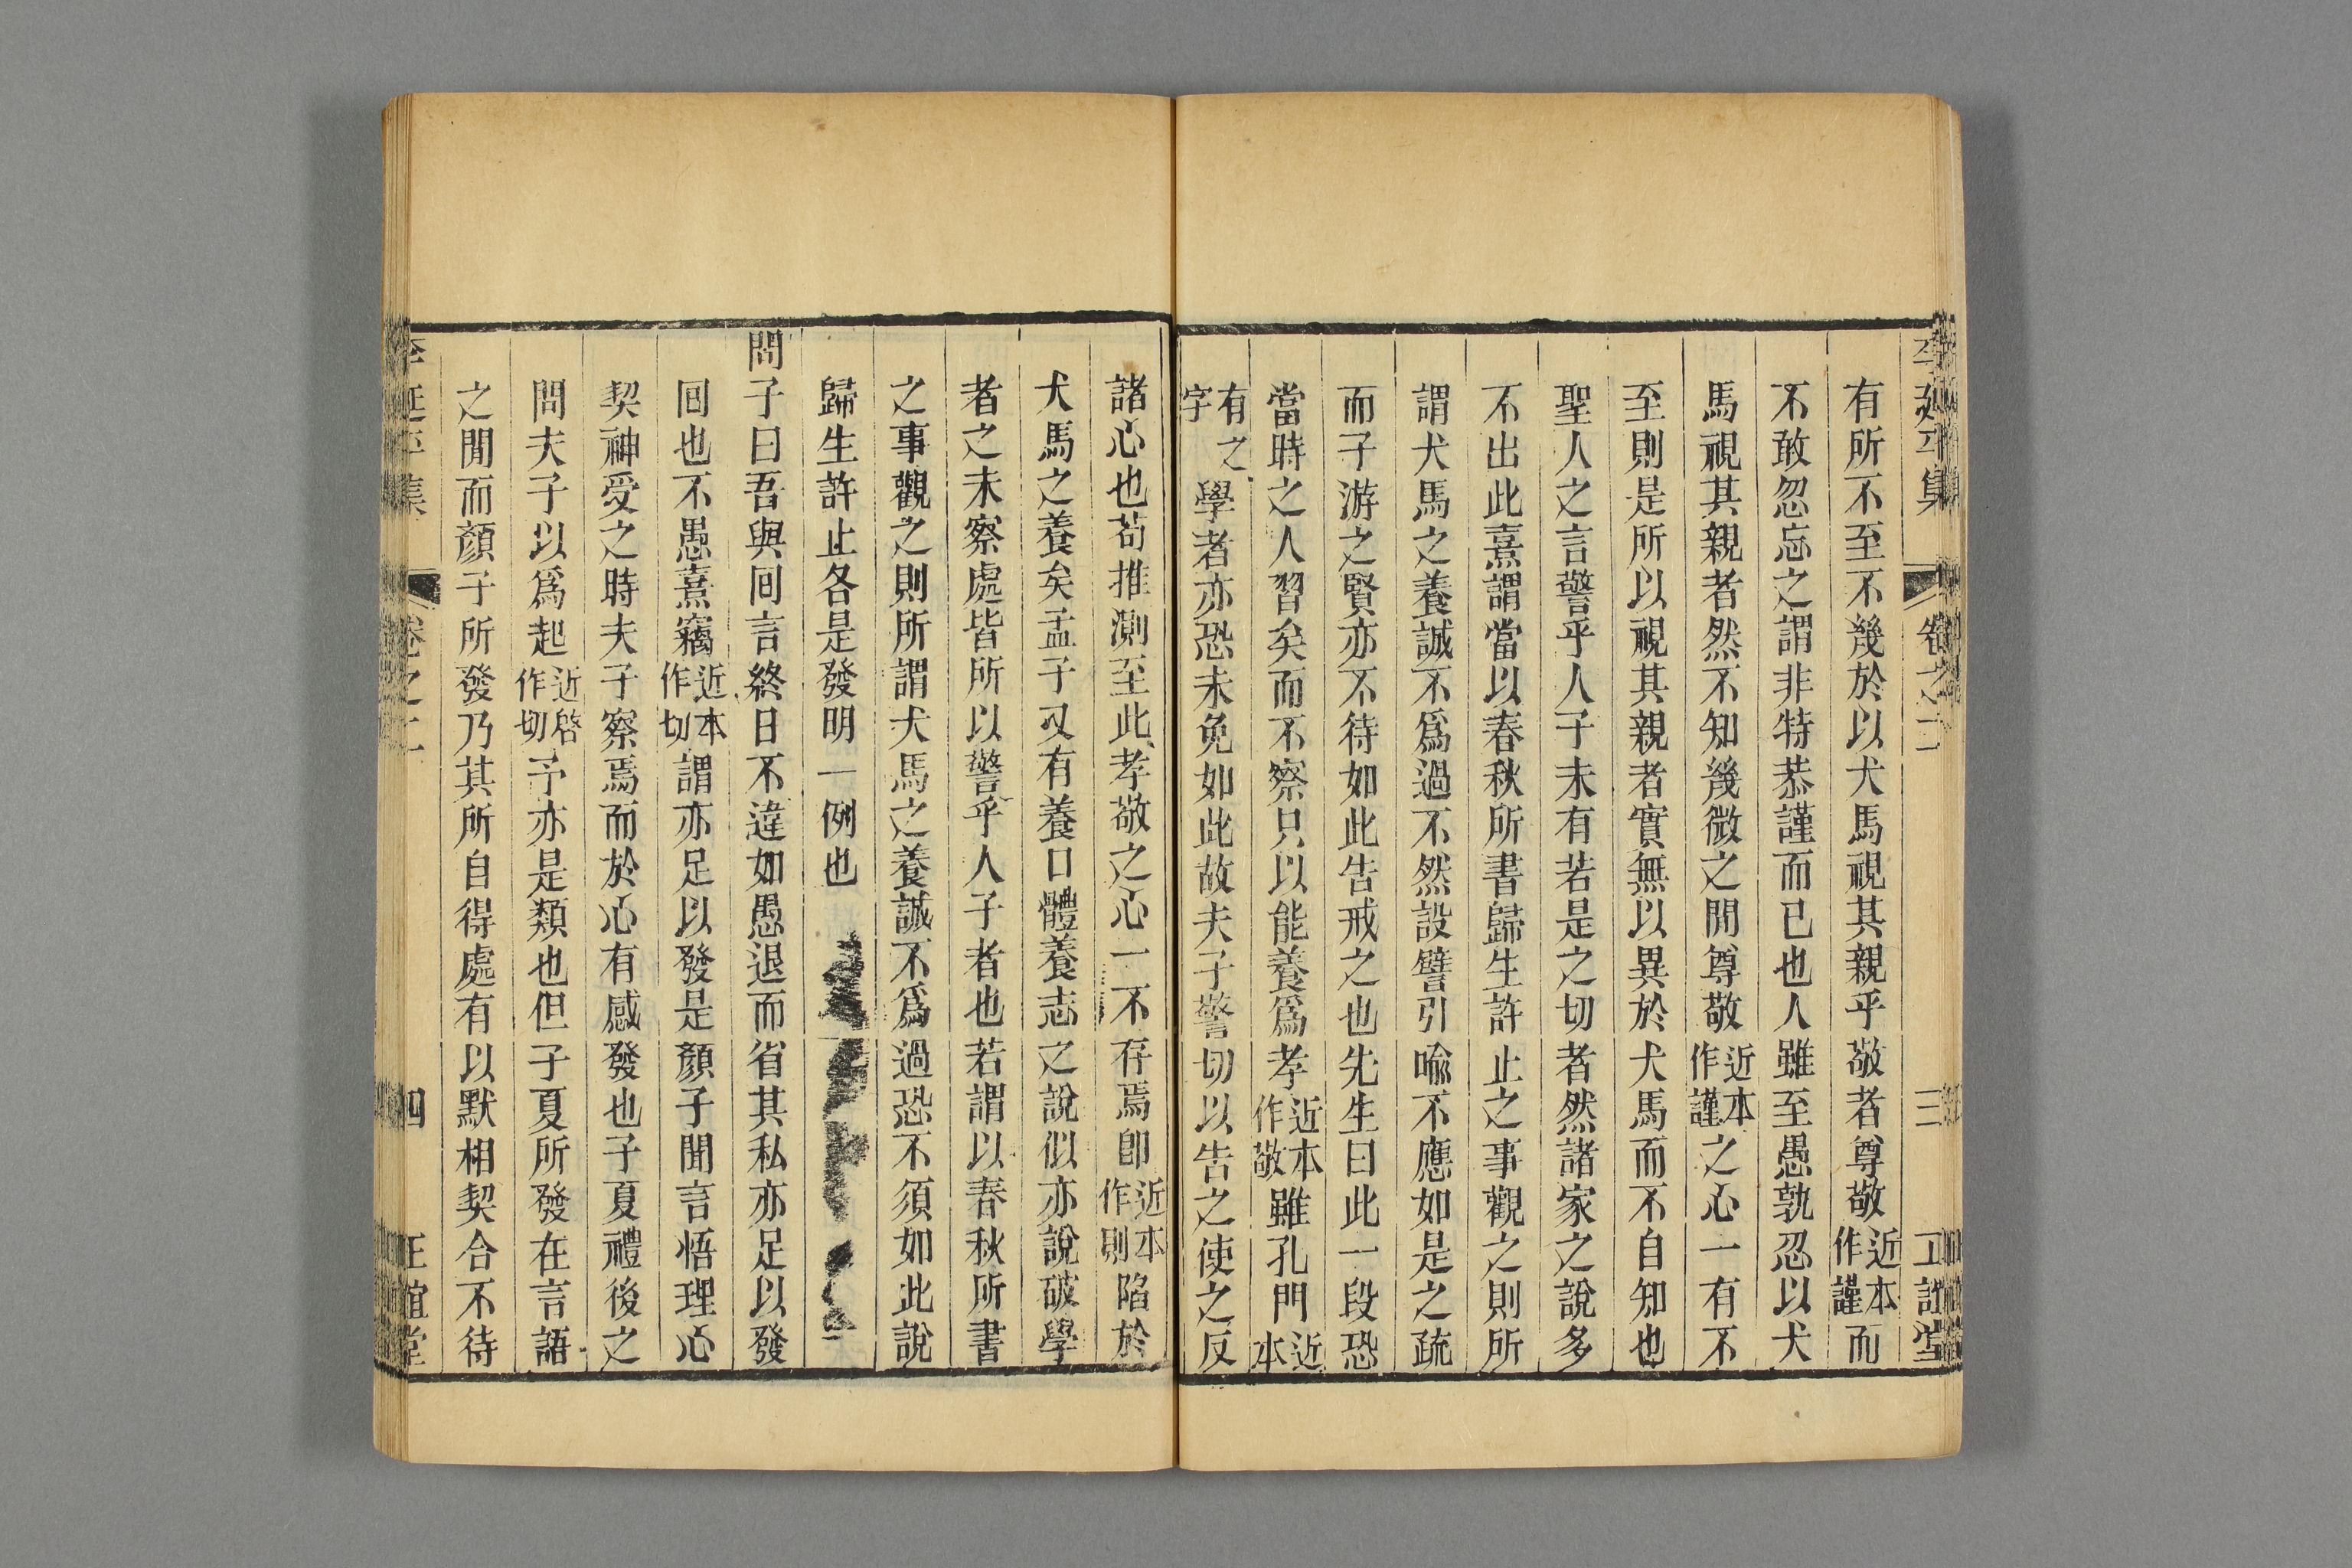 李延平集 卷之二 三 正誼堂
有所不至不幾於以犬馬視其親乎敬者尊敬近本作謹而
不敢忽忘之謂非特恭謹而已也人雖至愚孰忍以犬
馬視其親者然不知幾微之間尊敬近本作謹之心一有不
至則是所以視其親者實無以異於犬馬而不自知也
聖人之言警乎人子未有若是之切者然諸家之說多
不出此熹謂當以春秋所書歸生許止之事觀之則所
謂犬馬之養誠不爲過不然設譬引喩不應如是之疏
而子游之賢亦不待如此告戒之也先生曰此一段恐
當時之人習矣而不察只以能養爲孝近本作敬雖孔門近本
有之字學者亦恐未免如此故夫子警切以告之使之反
諸心也苟推測至此孝敬之心一不存焉卽近本作則陷於
犬馬之養矣孟子又有養口體養志之說似亦說破學
者之未察處皆所以警乎人子者也若謂以春秋所書
之事觀之則所謂犬馬之養誠不爲過恐不須如此說
歸生許止各是發明一例也
問子曰吾與回言終日不違如愚退而省其私亦足以發
回也不愚熹竊近本作切謂亦足以發是顏子聞言悟理心
契神受之時夫子察焉而於心有感發也子夏禮後之
問夫子以爲起近啓作切予亦是類也但子夏所發在言語
之間而顏子所發乃其所自得處有以默相契合不待
李延平集 卷之二 四 正誼堂